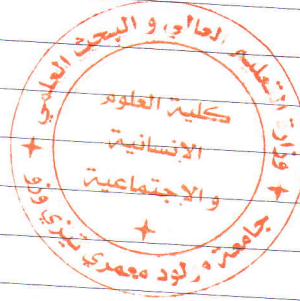 وزارة التعليم العالي و البحث العلمي
كلية العلوم
الإنسانية
و الاجتماعية
جامعة مولود معمري تيزي وزو